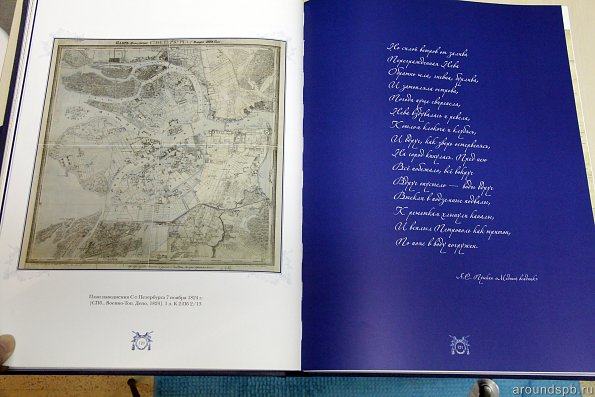 План наводнения С-т Петербурга 7 ноября 1824 г.
[СПб., Военно-Топ. Депо, 1824]. 1 л. К 2-Пб 2/13
Но силой ветров от залива
Перегражденная Нева
Обратно шла, гневна, бурлива,
И затопляла острова,
Погода пуще свирепела,
Нева вздувалась и ревела,
Котлом клокоча и клубясь,
И вдруг, как зверь остервенясь,
На город кинулась. Пред нею
Всё побежало; всё вокруг
Вдруг опустело — воды вдруг
Втекли в подземные подвалы,
К решеткам хлынули каналы,
И всплыл Петрополь как тритон,
По пояс в воду погружен.
А.С. Пушкин «Медный всадник»
121
aroundspb.ru